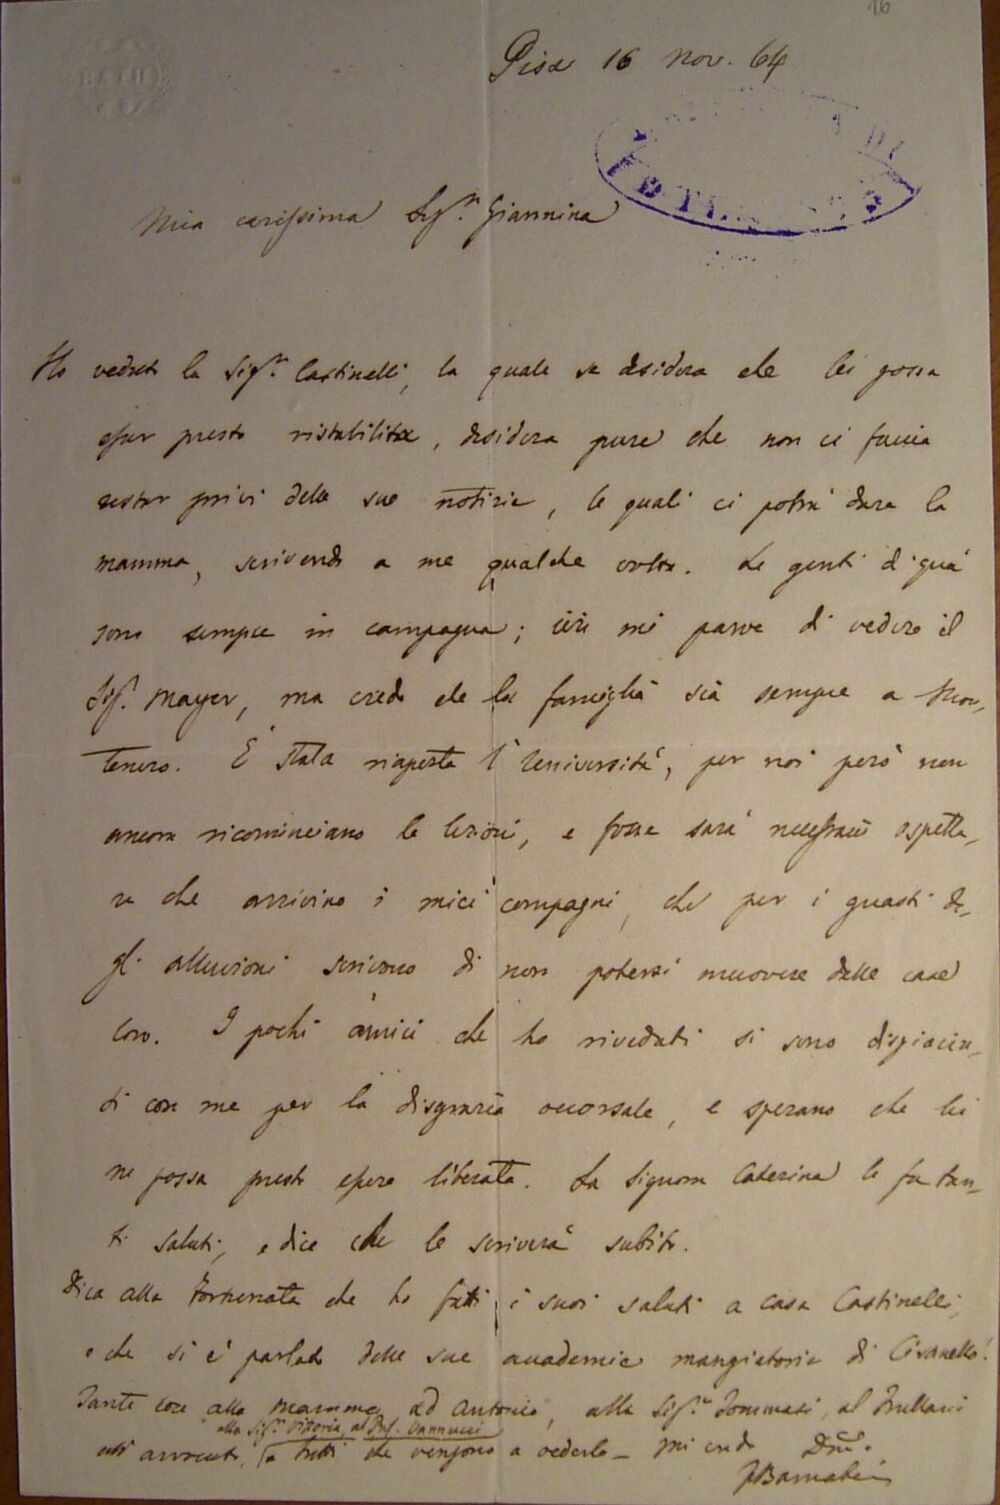 16
Pisa 16 Nov. 64
BATH
Mia carissima Sigra. Giannina
Ho veduto la Sigra. Castinelli, la quale se desidera che lei possa
esser presto ristabilita, desidera pure che non ci faccia
restar privi delle sue notizie, le quali ci potrà dare la
mamma, scrivendo a me qualche volta. Le genti di quà
sono sempre in campagna; ieri mi parve di vedere il
Sigr. Mayer, ma credo che la famiglia sia sempre a Mon-
tenero. È stata riaperta l'Università, per noi però non
ancora ricominciano le lezioni, e forse sarà necessario aspetta-
re che arrivino i miei compagni, che per i guasti de-
gli alluvioni scrivono di non potersi muovere dalle case
loro. I pochi amici che ho riveduti si sono dispiaciu-
ti con me per la disgrazia occorsale, e sperano che lei
ne possa presto essere liberata. La Signora Caterina le fa tan-
ti saluti, e dice che le scriverà subito.
Dica alla Fortunata che ho fatti i suoi saluti a casa Castinelli,
e che si è parlato delle sue accademie mangiatorie di Cisanello.
Tante cose alla mamma, ad Antonio, alla Sigra. Tommasi, al Trullani
alla Sigra. Vittoria, al Prof. Vannucci
all'avvocato, e tutti che vengono a vederla – Mi creda Dmo.
FBarnabei